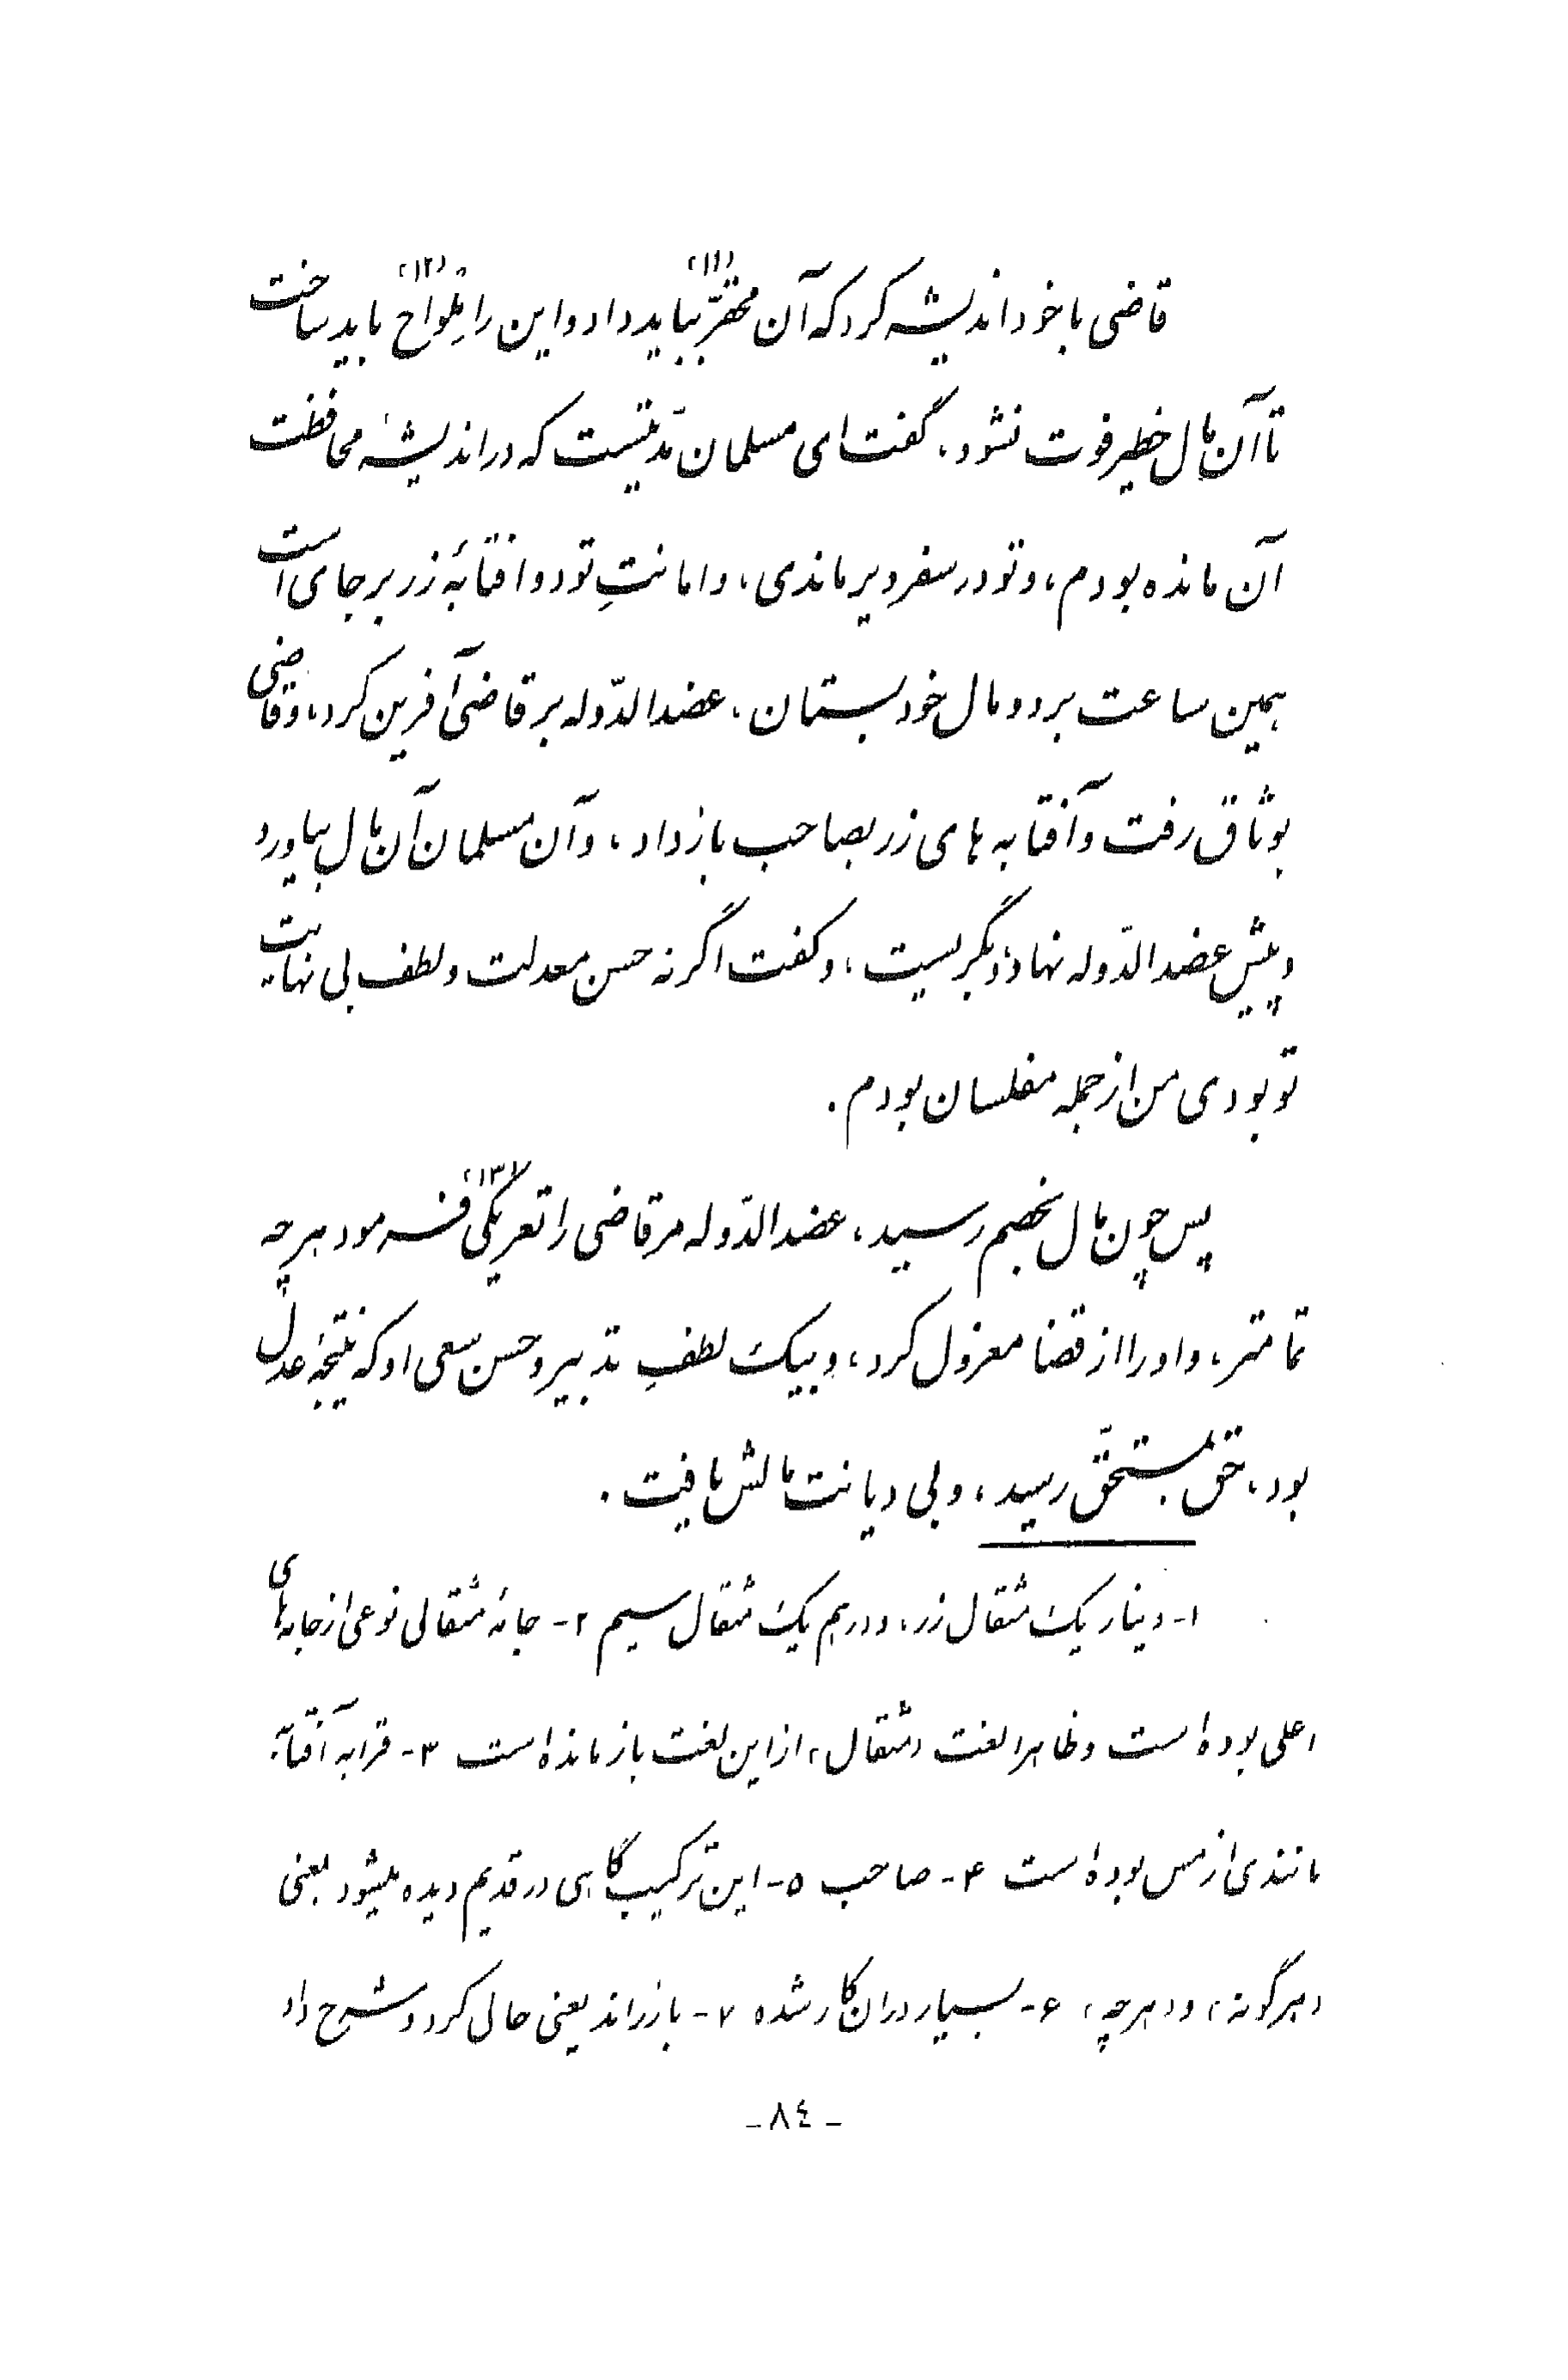 قاضی با خود اندیشه کرد که آن محقّر بباید داد و این را مِلواح باید ساخت (۱۱) (۱۲)
تا آن مال خطیر فوت نشود، گفت ای مسلمان مدّتیست که در اندیشهٔ محافظت
آن مانده بودم، و تو در سفر دیر ماندی، و امانتِ تو دو آفتابهٔ زر بر جای است
همین ساعت برو و مال خود بستان، عضدالدّوله بر قاضی آفرین کرد، و قاضی
بوثاق رفت و آفتابه های زر بصاحب باز داد، و آن مسلمان آن مال بیاورد
و پیش عضدالدّوله نهاد و بگریست، و گفت اگر نه حسن معدلت و لطف بی نهایت
تو بودی من از جمله مفلسان بودم.
پس چون مال بخصم رسید، عضدالدّوله مر قاضی را تعریکی (۱۳) فرمود هر چه
تمامتر، و او را از قضا معزول کرد، و بیک لطفِ تدبیر و حسن سعی او که نتیجهٔ عدل
بود، حق بمستحقّ رسید، و بی دیانت مالش یافت.
۱- دینار یک مثقال زر، و درهم یک مثقال سیم ۲- جامهٔ مثقالی نوعی از جامه‌های
اعلی بوده است و ظاهرا لغت «مثقال» از این لغت باز مانده است ۳- قرابه آفتابه
مانندی از مس بوده است ۴- صاحب ۵- این ترکیب گاهی در قدیم دیده میشود بمعنی
«هرگونه» و «هرچه» ۶- بسیار در آن کار شده ۷- باز راند یعنی حالی کرد و شرح داد
- ۸٤ -